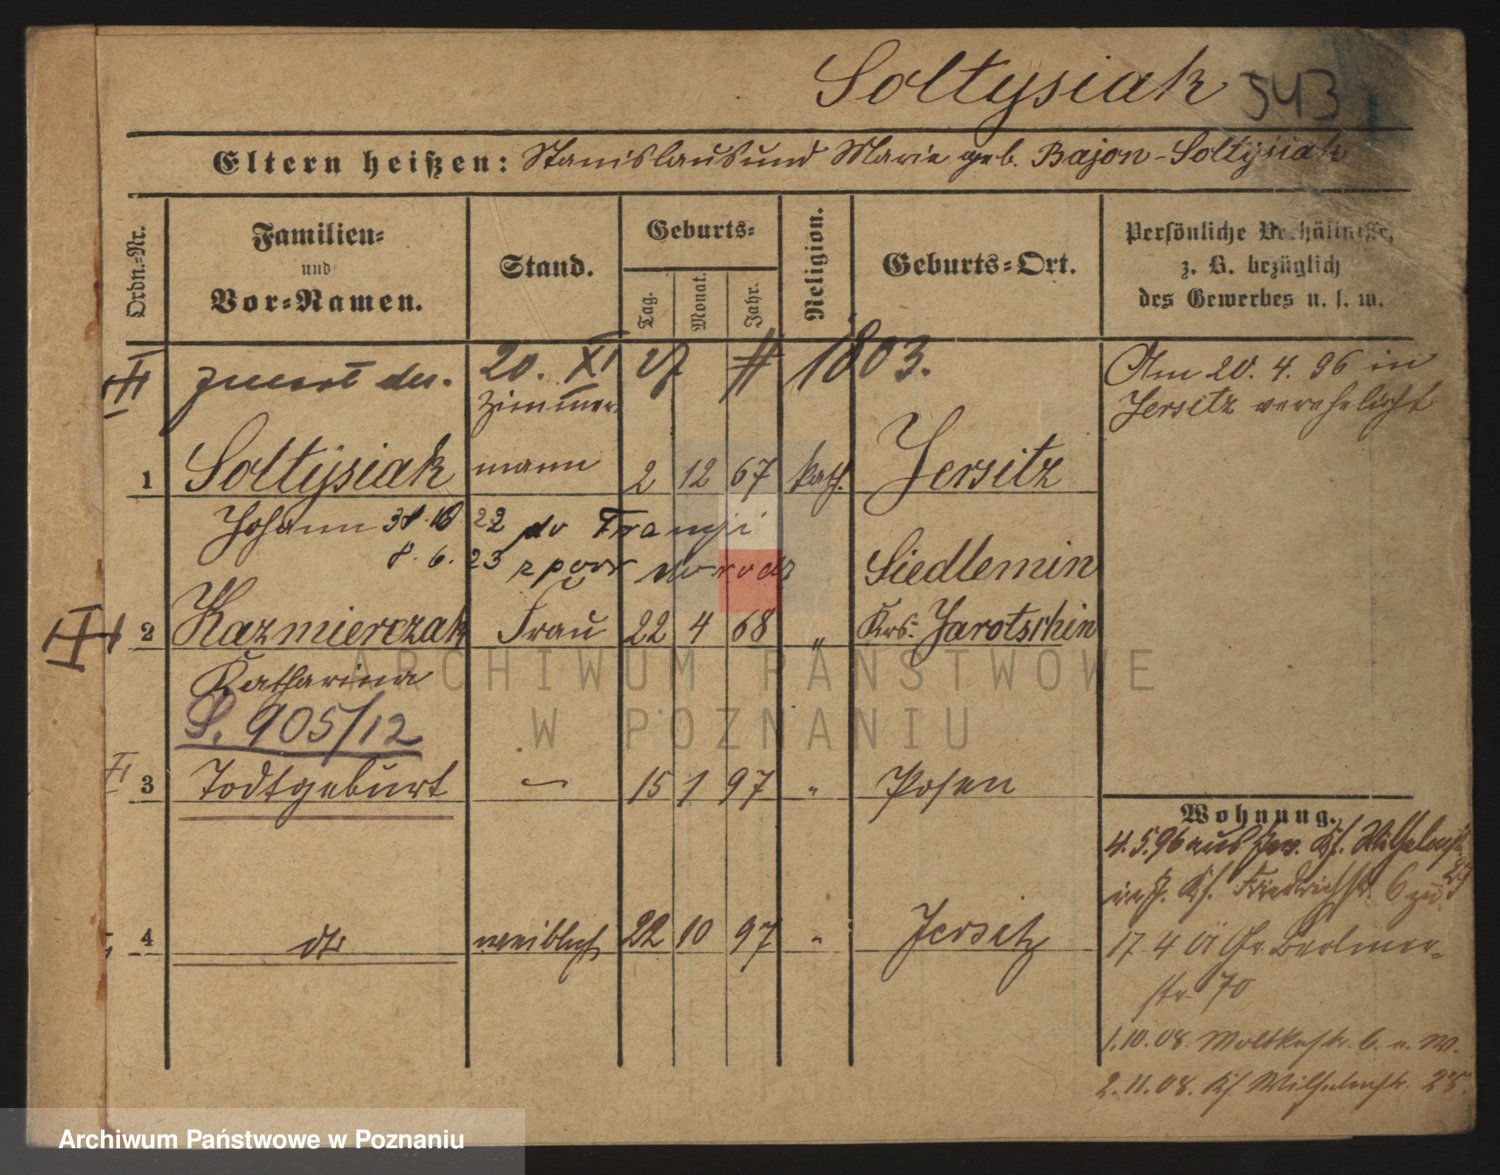 Soltysiak 543
Eltern heißen: Stanislaus und Marie geb. Bajon-Soltysiak
Ordn.-Nr.
Familien-
und
Vor-Namen.
Stand.
Geburts-
Tag.
Monat.
Jahr.
Religion.
Geburts-Ort.
Persönliche Verhältnisse,
z. B. bezüglich
des Gewerbes u. s. w.
20. XI 1803.
Am 20. 4. 96 in
Jersitz verehelicht
Zimmer
1 Soltysiak mann 2 12 67 kath. Jersitz
Johann 22 do Francji
8. 6. 23
Siedlemin
2 Kazmierczak Frau 22 4 68 " Krs. Jarotschin
Katharina
S. 905/12
3 Todtgeburt — 15 1 97 " Posen
Wohnung.
4. 5. 96 aus Jer. Kf. Wilhelmstr.
Friedrichstr. 6
4 dto weiblich 22 10 97 " Jersitz
17 4 Gr. Berliner-
str. 70
1. 10. 08. Moltkestr. 6. n. W.
2. 11. 08. Kf. Wilhelmstr. 25.
ARCHIWUM PAŃSTWOWE
W POZNANIU
Archiwum Państwowe w Poznaniu